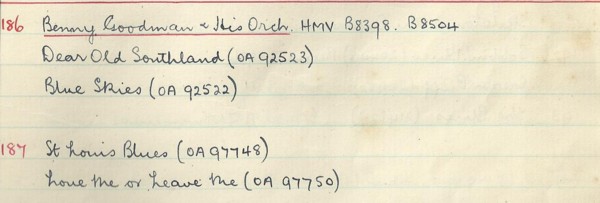 186 Benny Goodman & His Orch. HMV B8398. B8504
Dear Old Southland (OA 92523)
Blue Skies (OA 92522)
187 St Louis Blues (OA 97748)
Love Me or Leave Me (OA 97750)